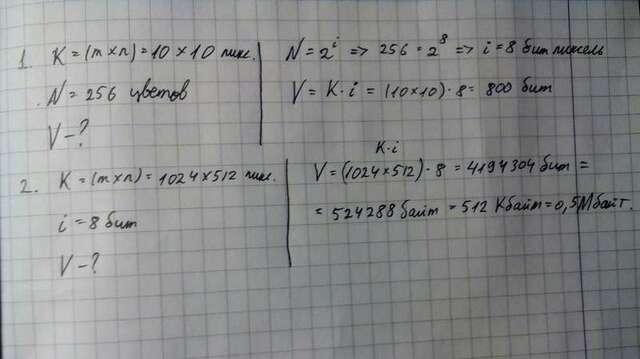 1. K = (m × n) = 10 × 10 пикс.
N = 256 цветов
V - ?
N = 2^i => 256 = 2^8 => i = 8 бит пиксель
V = K · i = (10 × 10) · 8 = 800 бит
2. K = (m × n) = 1024 × 512 пикс.
i = 8 бит
V - ?
K · i
V = (1024 × 512) · 8 = 4194304 бит =
= 524288 байт = 512 Кбайт = 0,5 Мбайт.